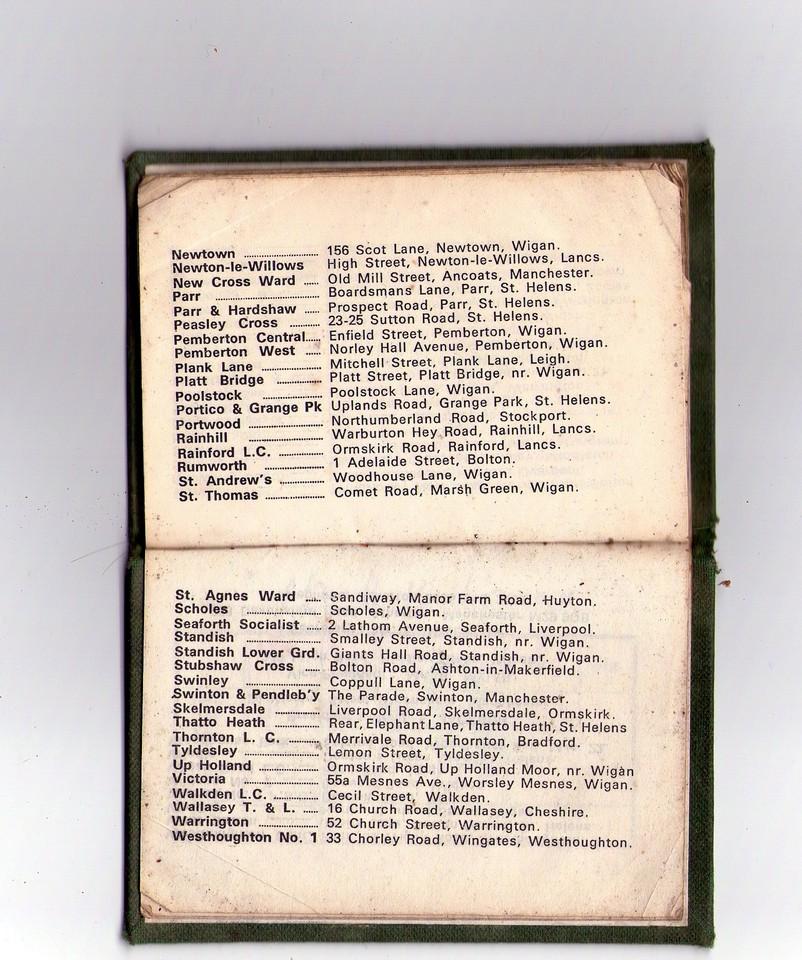 Newtown ........................ 156 Scot Lane, Newtown, Wigan.
Newton-le-Willows High Street, Newton-le-Willows, Lancs.
New Cross Ward ..... Old Mill Street, Ancoats, Manchester.
Parr .................................. Boardsmans Lane, Parr, St. Helens.
Parr & Hardshaw ..... Prospect Road, Parr, St. Helens.
Peasley Cross .......... 23-25 Sutton Road, St. Helens.
Pemberton Central..... Enfield Street, Pemberton, Wigan.
Pemberton West ..... Norley Hall Avenue, Pemberton, Wigan.
Plank Lane .................... Mitchell Street, Plank Lane, Leigh.
Platt Bridge ............... Platt Street, Platt Bridge, nr. Wigan.
Poolstock .................... Poolstock Lane, Wigan.
Portico & Grange Pk Uplands Road, Grange Park, St. Helens.
Portwood ........................ Northumberland Road, Stockport.
Rainhill ........................ Warburton Hey Road, Rainhill, Lancs.
Rainford L.C. ............... Ormskirk Road, Rainford, Lancs.
Rumworth .................... 1 Adelaide Street, Bolton.
St. Andrew's ............... Woodhouse Lane, Wigan.
St. Thomas .................... Comet Road, Marsh Green, Wigan.
St. Agnes Ward ..... Sandiway, Manor Farm Road, Huyton.
Scholes ........................ Scholes, Wigan.
Seaforth Socialist ..... 2 Lathom Avenue, Seaforth, Liverpool.
Standish ........................ Smalley Street, Standish, nr. Wigan.
Standish Lower Grd. Giants Hall Road, Standish, nr. Wigan.
Stubshaw Cross ..... Bolton Road, Ashton-in-Makerfield.
Swinley ........................ Coppull Lane, Wigan.
Swinton & Pendleb'y The Parade, Swinton, Manchester.
Skelmersdale ............... Liverpool Road, Skelmersdale, Ormskirk.
Thatto Heath ............... Rear, Elephant Lane, Thatto Heath, St. Helens
Thornton L. C. .......... Merrivale Road, Thornton, Bradford.
Tyldesley ........................ Lemon Street, Tyldesley.
Up Holland .................... Ormskirk Road, Up Holland Moor, nr. Wigan
Victoria ........................ 55a Mesnes Ave., Worsley Mesnes, Wigan.
Walkden L.C. ............... Cecil Street, Walkden.
Wallasey T. & L. ..... 16 Church Road, Wallasey, Cheshire.
Warrington .................... 52 Church Street, Warrington.
Westhoughton No. 1 33 Chorley Road, Wingates, Westhoughton.